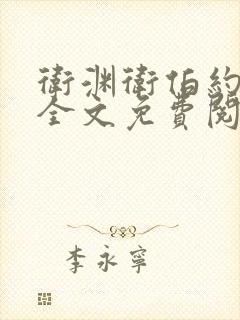 衛渊衛伯約
全文免費閱
李永寧